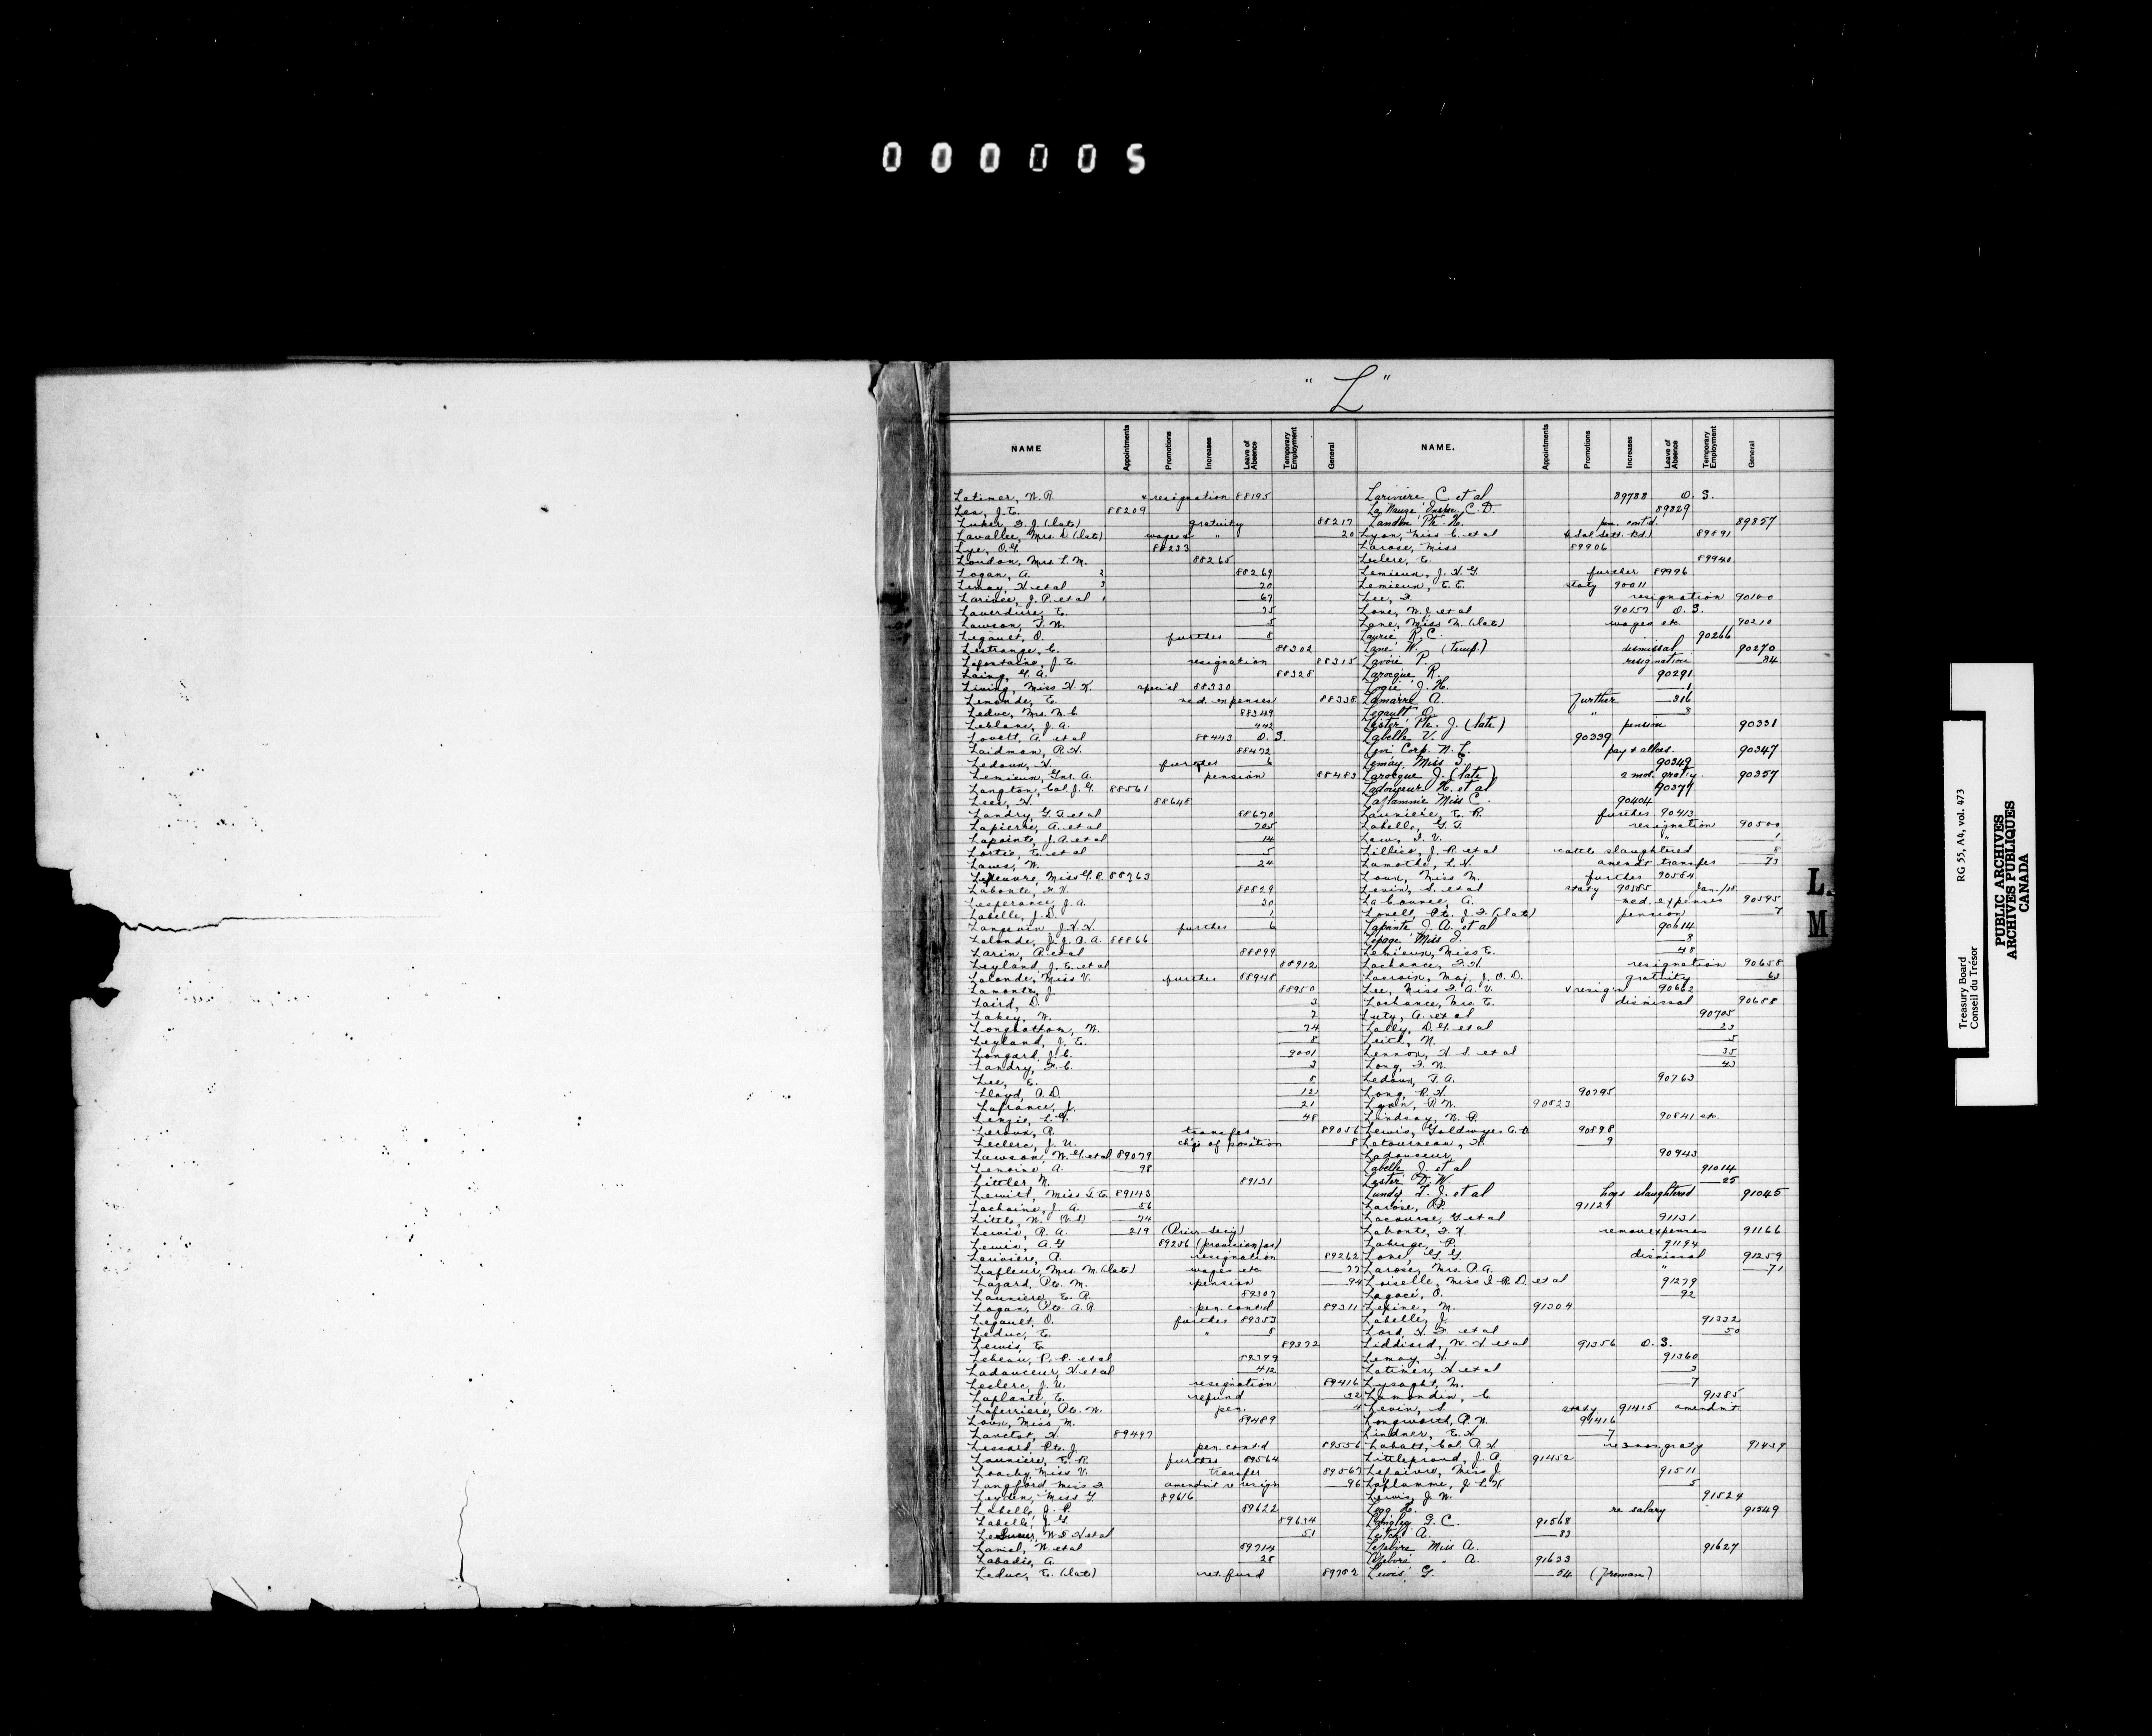 000005
"L"
NAME Appointments Promotions Increases Leave of Absence Temporary Employment General
Latimer, W. R. & resignation 88195
Lea, J. E. 88209
Luker, F. J. (late) gratuity 88217
Lavallee, Mrs. D. (late) wages " 20
Lye, O. G. 88233
Loudon, Mrs L. M. 88265
Logan, A. 2 88269
Lemay, H et al 3 20
Larivée, J. P. et al 1 67
Laverdiere, E. 75
Lawson, T. W. 5
Legault, O. further 8
Lestrange, C. 88302
Lafontaine, J. E. resignation 88315
Laing, G. A. 88328
Living, Miss H. K. special 88330
Lemonde, E. med. expenses 88338
Leduc, Mrs. M. C. 88349
Leblanc, J. A. 442
Lovett, A. et al 88443 O. S.
Laidman, R. H. 88472
Ledoux, H. further 6
Lemieux, Gnr. A. pension 88483
Langton, Col. J. G. 88561
Lees, H. 88648
Landry, G. A. et al 88670
Lapierre, A. et al 705
Lapointe, J. A. et al 14
Lortie, E. et al 5
Laws, W. 24
Lefeuvre, Miss G. R. 88763
Labonte, F. X. 88829
Lesperance, J. A. 20
Labelle, J. D. 1
Langevin, J. H. H. further 6
Lalonde, J. J. O. A. 88866
Larin, A. et al 88899
Leyland, J. E. et al 88912
Lalonde, Miss V. further 88948
Lamonte, J. 88950
Laird, D. 3
Lakey, W. 7
Longbottom, W. 74
Leyland, J. E. 8
Longard, J. C. 9001
Landry, F. C. 3
Lee, E. 8
Lloyd, A. D. 12
Lafrance, J. 21
Lenzie, L. G. 48
Leroux, R. transfer 89056
Leclerc, J. U. chge of position 8
Lawson, W. G. et al 89079
Lemoine A. 98
Littler N. 89131
Lewitt, Miss F. E. 89143
Lachaine, J. A. 56
Little, W. 74
Lewis, R. A. 219
Lewis, A. G. 89256
Lariviere, A. resignation 89262
Lafleur, Mrs. M. (late) wages etc. 77
Lazard, Pte. M. pension 94
Launiere E. R. 89307
Logan, Pte. A. R. pen. contd 89311
Legault, O. further 89353
Leduc, E. " 8
Lewis, E. 89372
Lebeau, P. P. et al 89399
Ladouceur, H. et al 412
Leclerc, J. U. resignation 89416
Laplante, E. refund 32
Laferriere, Pte. W. pen. 4
Loux, Miss M. 89489
Lanctot, H. 89497
Lessard Pte. J. pen. contd 89556
Launiere, E. R. further 89564
Loachy Miss V. transfer 89567
Langford Miss F. amendnt re resign 96
Leyden, Miss G. 89616
Labelle, J. P. 89622
Labelle, J. G. 89634
LeSueur, W. S. H et al 51
Laniel, W et al 89714
Labadie, A. 28
Leduc, E. (late) ret. fund 89752
NAME. Appointments Promotions Increases Leave of Absence Temporary Employment General
Lariviere, C et al 89788 O. S.
La Nauze Inspr. C. D. 89829
Landon Pte. H. pen. contd. 89857
Lyon, Miss C. et al 89891
Larose, Miss 89906
Leclerc, E. 89940
Lemieux, J. H. G. further 89996
Lemieux, E. E. staty 90011
Lee, F. resignation 90100
Lane, W. J. et al 90157 O. S.
Lane, Miss M. (late) wages etc. 90210
Laurie R. C. 90266
Lane W. (Temp.) dismissal 90270
Lavoie P. resignation 84
Larocque R. 90291
Logie J. H. 1
Lamarre A. Further 316
Legault O. " 8
Lister Pte. J. (late) pension 90331
Labelle V. 90339
Levi Corp. N. L. pay & allces. 90347
Lemay Miss J. 90349
Larocque J. (late) 2 mos. graty. 90357
Ladouceur H. et al 90377
Laflamme Miss C. 90404
Launiere, E. R. further 90413
Labelle, G. T. resignation 90500
Law, F. V. " 1
Lillico, J. R. et al cattle slaughtered 8
Lamothe, L. H. amendt transfer 73
Loux, Miss M. further 90584
Levin, S. et al staty 90585 Jan./18
La Counce, A. med. expenses 90595
Lovell, Pte. J. F. (late) pension 7
Lapointe J. A. et al 90614
Lepage Miss J. 8
Lemieux, Miss E. 48
Lachance, F. X. resignation 90658
Lacroix, Maj. J. O. D. gratuity 63
Lee, Miss F. A. V. & resign 90662
Lachance, Mrs. E. dismissal 90688
Luty, A. et al 90705
Lally, D. G. et al 23
Leith, N. 5
Lennox, H. S. et al 35
Long, F. W. 43
Ledoux, T. A. 90763
Long, R. H. 90795
Lynn, R. W. 90823
Lindsay, N. R. 90841 etc.
Lewis, Goldwyer C. D. 90898
Letourneau, H. 9
Ladouceur 90943
Labelle J. et al 91014
Lester D. W. 25
Lundy T. J. et al hogs slaughtered 91045
Larose, P. 91129
Lacourse, G. et al 91131
Labonte, F. X. remov. expenses 91166
Laberge, P. 91194
Lane, G. G. dismissal 91259
Larose, Mrs. P. A. " 71
Loiselle, Miss I. R. D. et al 91279
Lagacé, O. 92
Lepine, M. 91304
Labelle, J. 91332
Lord, H. F. et al 50
Liddiard, W. H et al 91356 O. S.
Lemay, H. 91360
Latimer, H et al 3
Lysaght, M. 7
Lamondin, C. 91385
Levin, S. staty. 91415 amendmt.
Longworth, A. N. 91416
Lindner, E. H. 7
Labatt, Col. R. H. re 3 mos. graty 91439
Littleproud, J. A. 91452
Lefaivre, Miss J. 91511
Laflamme, J. L. K. 5
Lewis, J. W. 91524
Legg H. re salary 91549
Langley G. C. 91568
Leitch A. 83
Lefebvre Miss A. 91627
Lefebvre " A. 91633
Lewis G. 54 (Foreman)
L.
M
Treasury Board RG 55, A4, vol. 473
Conseil du Trésor
PUBLIC ARCHIVES
ARCHIVES PUBLIQUES
CANADA